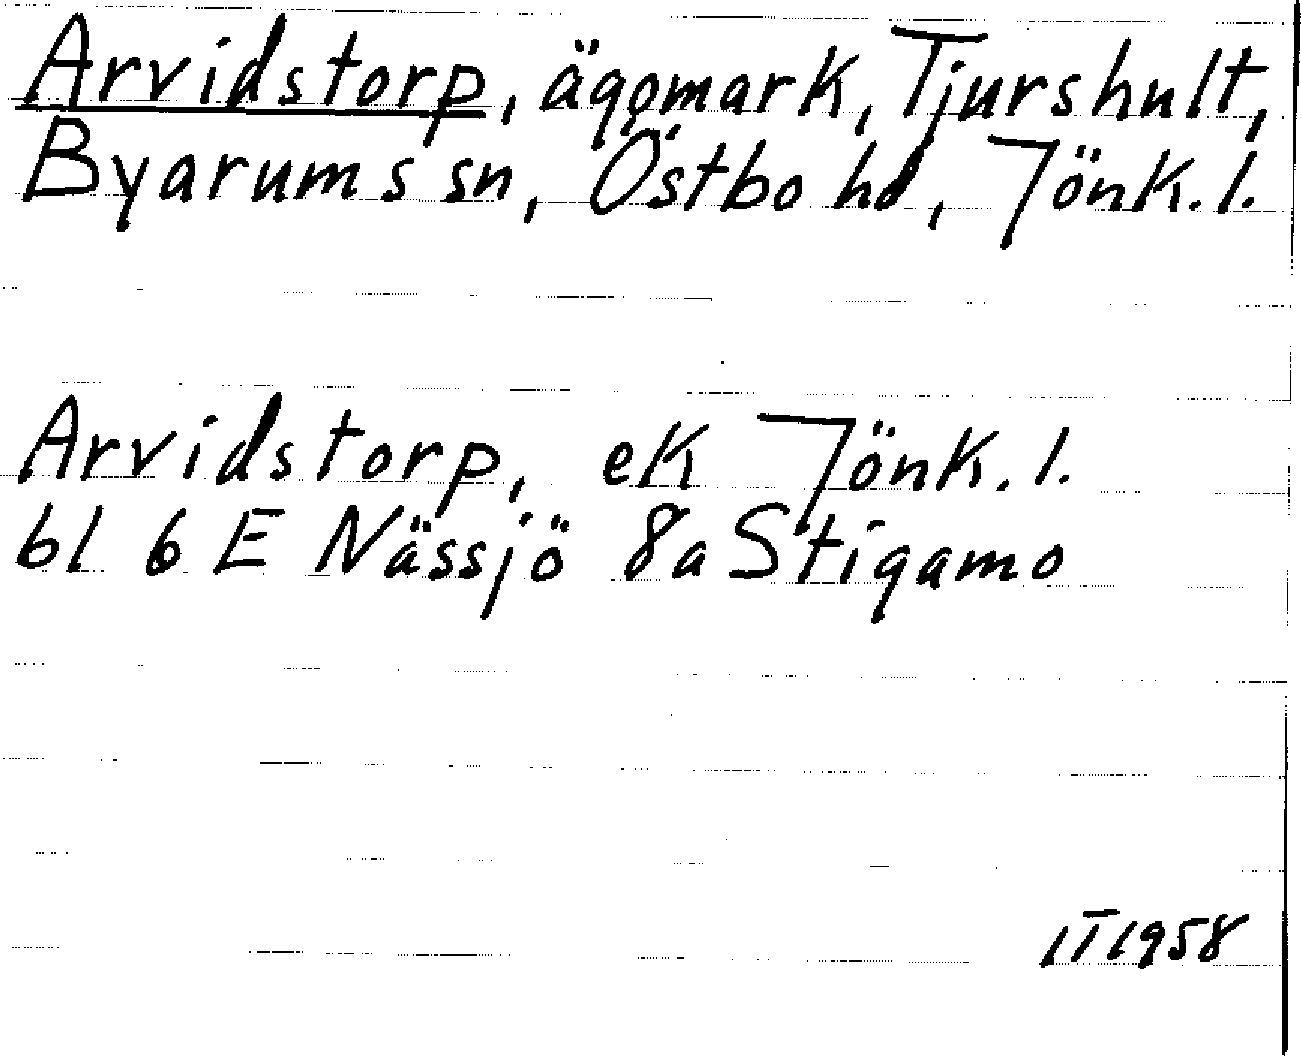 Arvidstorp, ägomark, Tjurshult,
Byarums sn, Östbo hd, Jönk. l.
Arvidstorp, ek Jönk. l.
bl 6 E Nässjö 8a Stigamo
IT 1958